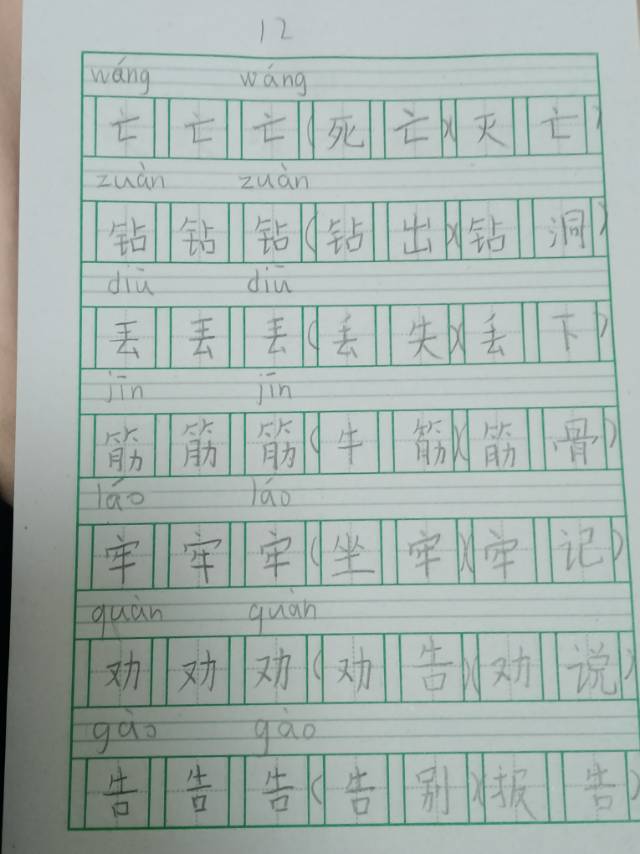 12
wáng wáng
亡 亡 亡(死 亡)(灭 亡)
zuàn zuàn
钻 钻 钻(钻 出)(钻 洞)
diū diū
丢 丢 丢(丢 失)(丢 下)
jīn jīn
筋 筋 筋(牛 筋)(筋 骨)
láo láo
牢 牢 牢(坐 牢)(牢 记)
quàn quàn
劝 劝 劝(劝 告)(劝 说)
gào gào
告 告 告(告 别)(报 告)